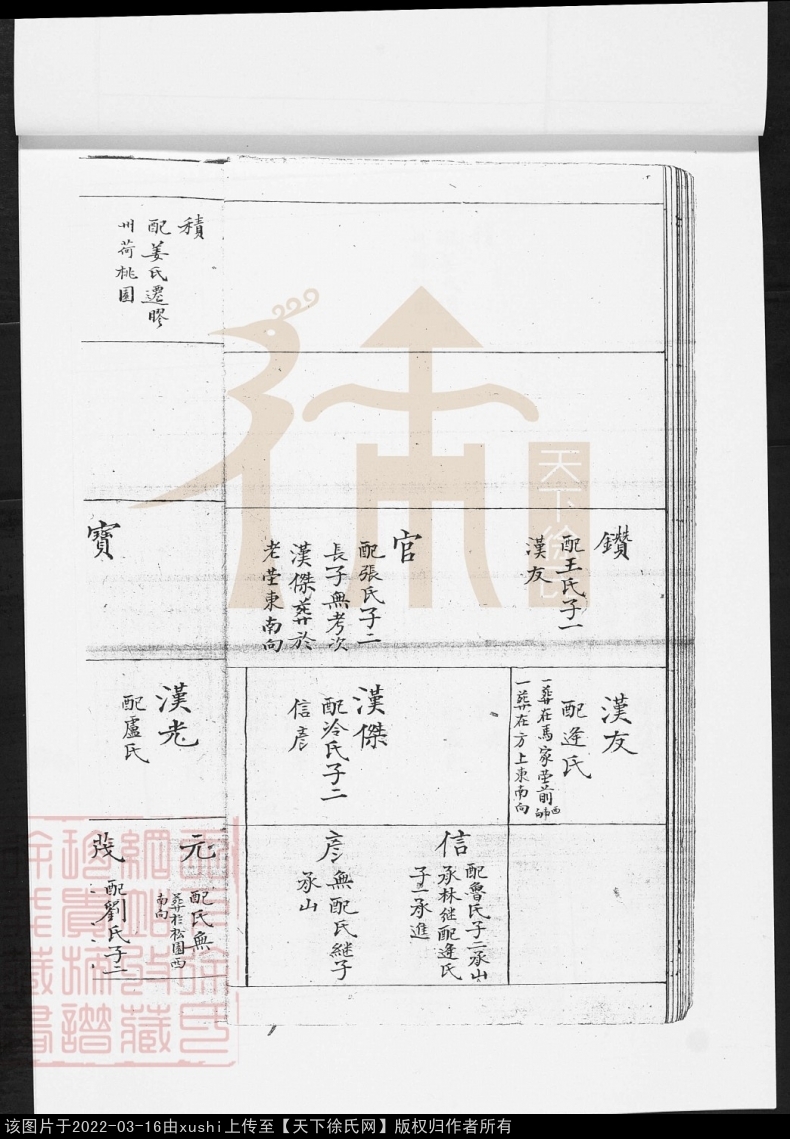 積
配姜氏遷膠
州荷桃園
鑽
配王氏子一
漢友
官
配張氏子二
長子無考次
漢傑葬於
老塋東南向
寶
漢友
配逄氏
一葬在馬家塋前西南向
一葬在方上東南向
漢傑
配冷氏子二
信彦
漢光
配盧氏
信
配魯氏子二承山
承林継配逄氏
子一承進
彦
無配氏継子
承山
元
配氏無
葬於松園西
南向
茂
配劉氏子二
天下徐氏
该图片于2022-03-16由xushi上传至【天下徐氏网】版权归作者所有